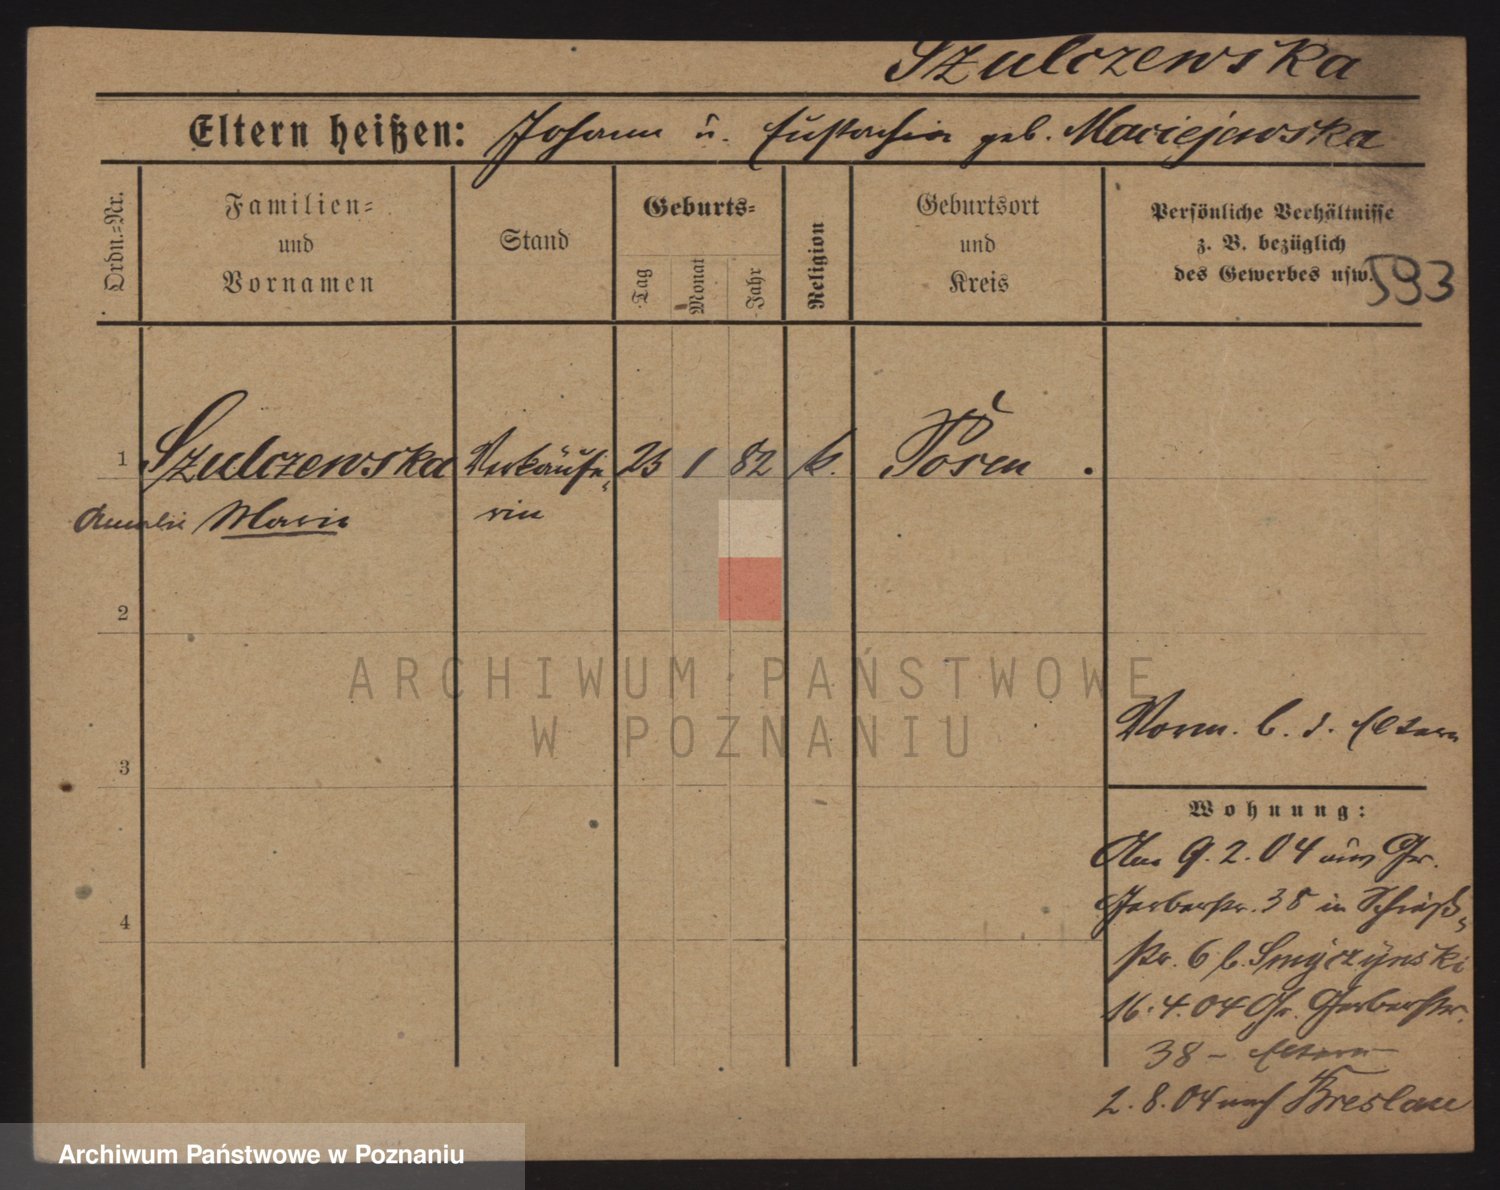 Szulczewska
Eltern heißen: Johann u. Eustachia geb. Maciejewska
Ordn.=Nr.
Familien=
und
Vornamen
Stand
Geburts=
Tag
Monat
Jahr
Religion
Geburtsort
und
Kreis
Persönliche Verhältnisse
z. B. bezüglich
des Gewerbes usw.
593
1 Szulczewska Verkäufe- 23 1 82 k. Posen .
Amalie Marie rin
2
ARCHIWUM PAŃSTWOWE
W POZNANIU
Vorm. b. d. Eltern
3
Wohnung:
Am 9.2.04 aus Gr.
Gerberstr. 38 in Schieß-
4
str. 6 b. Smyczynski
16.4.04 Gr. Gerberstr.
38 - Eltern
2.8.04 nach Breslau
Archiwum Państwowe w Poznaniu